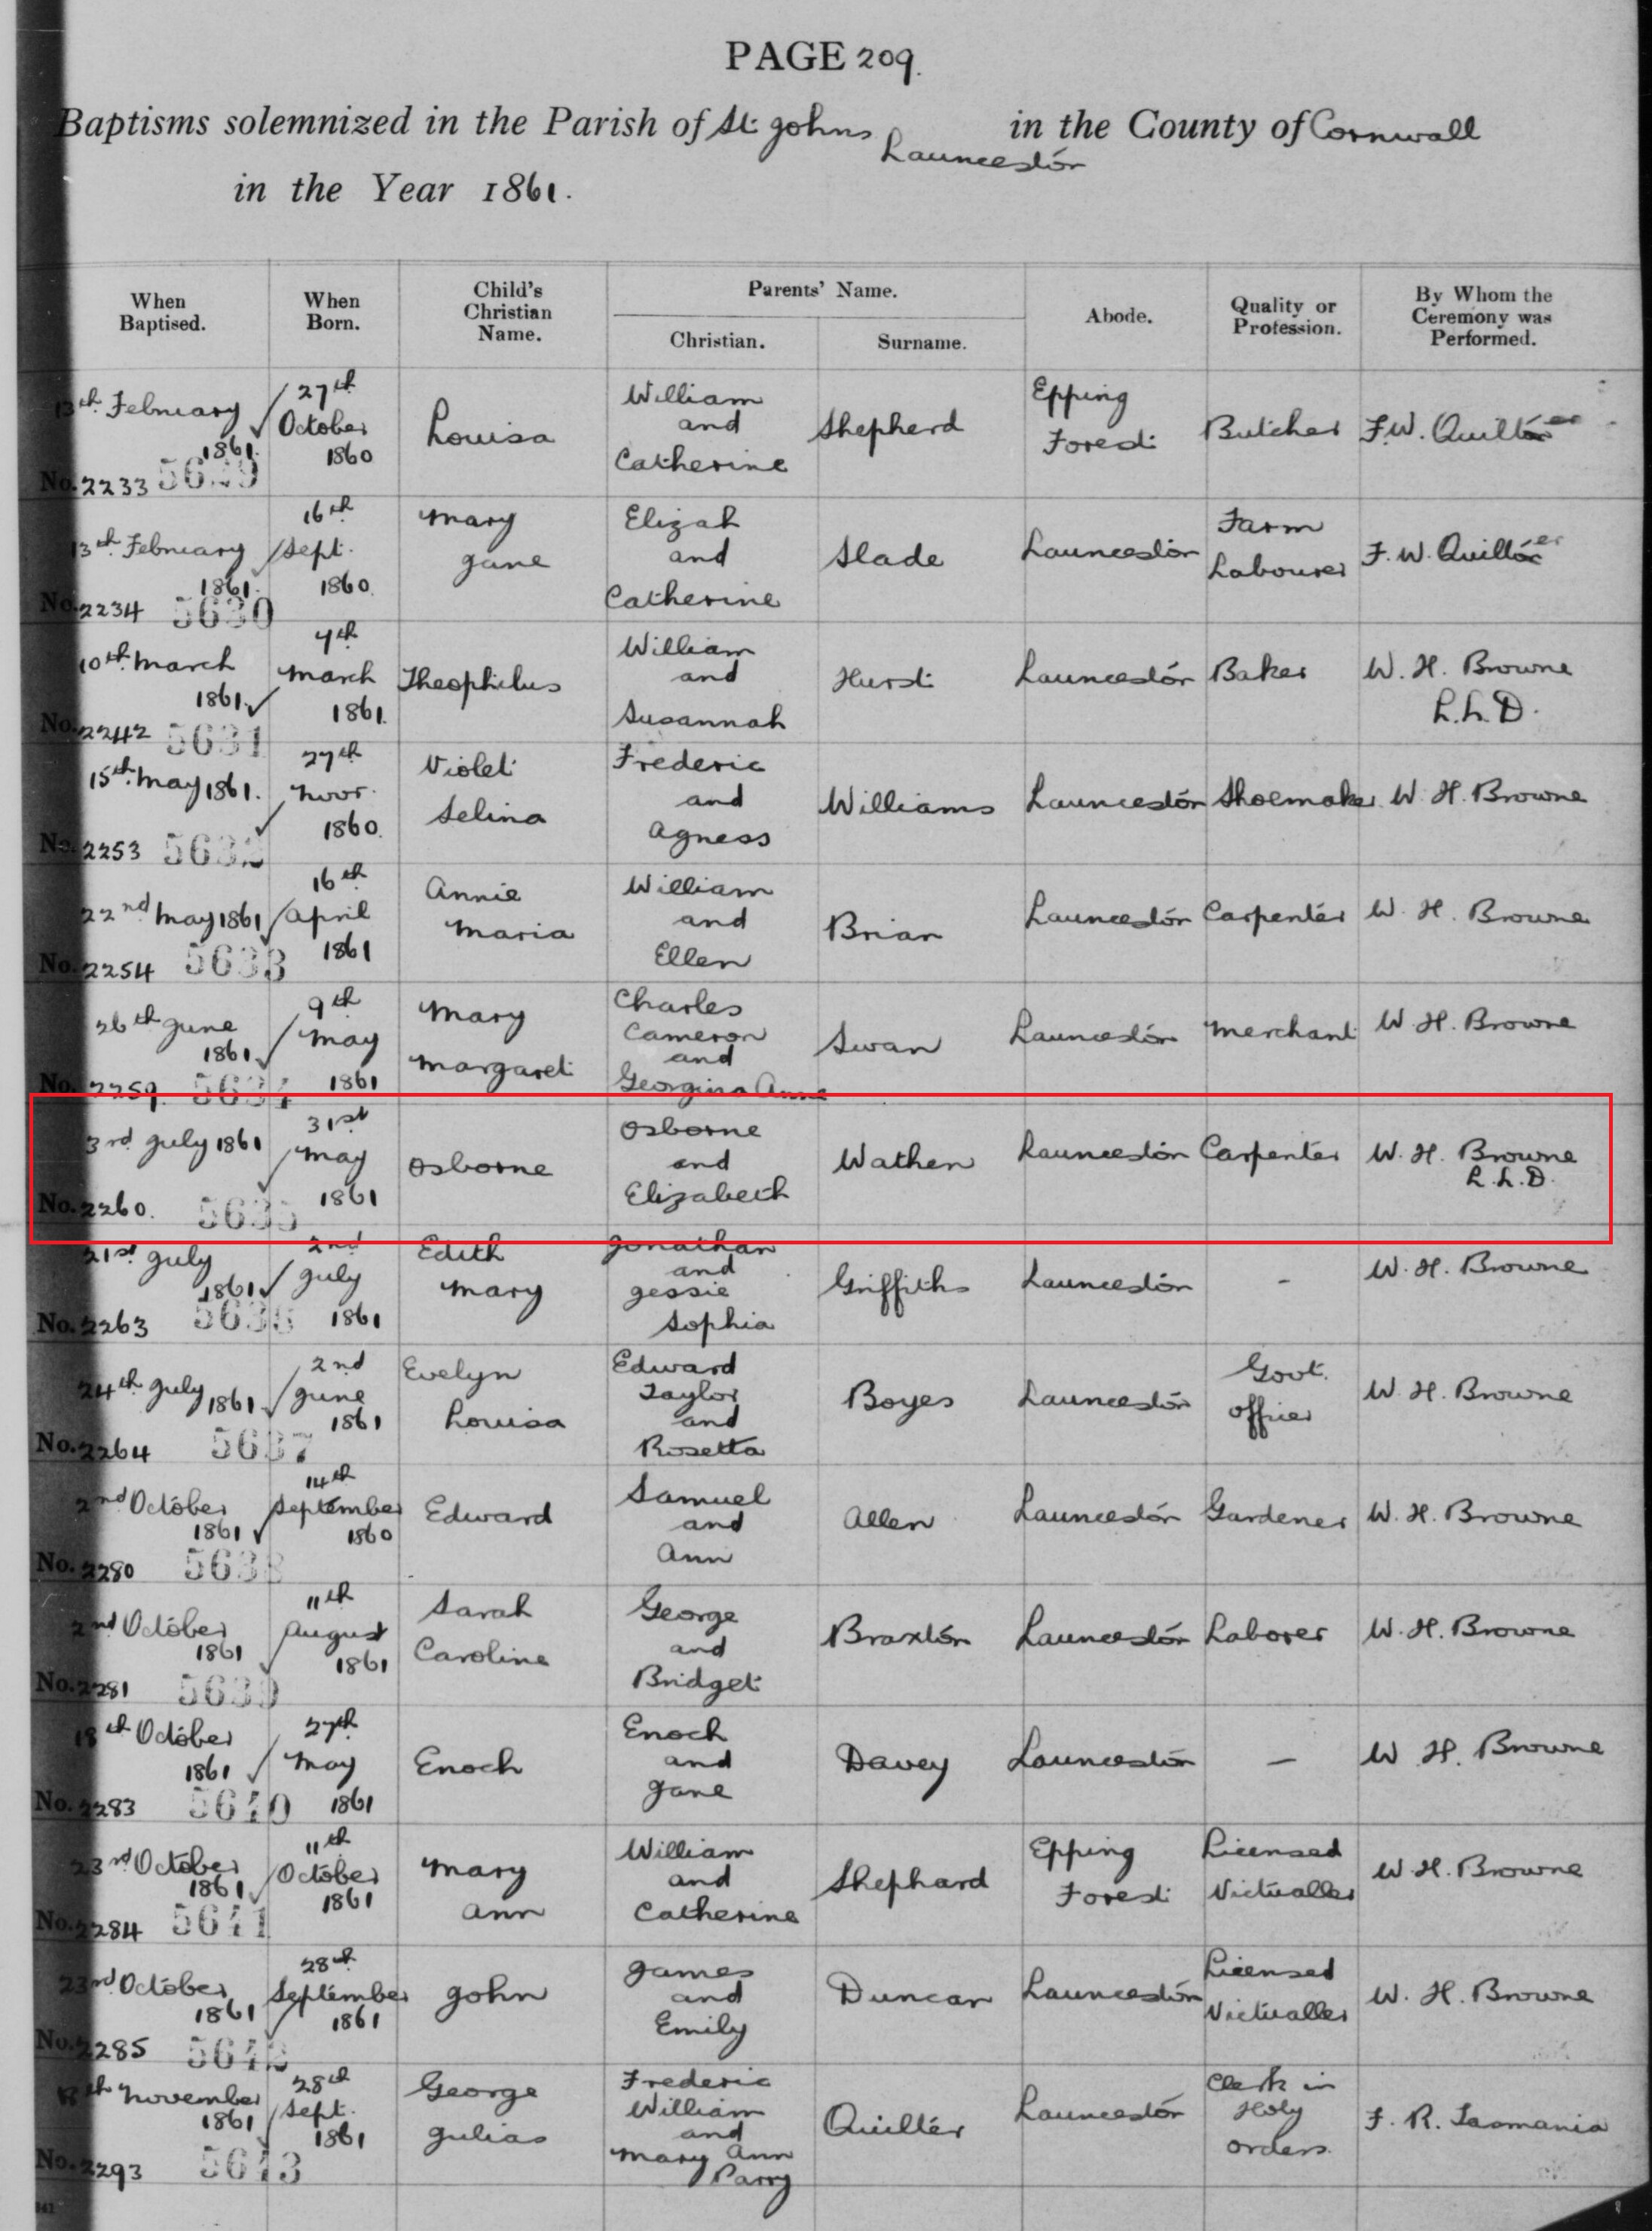 PAGE 209.
Baptisms solemnized in the Parish of St. Johns Launceston in the County of Cornwall
in the Year 1861.
When Baptised.
When Born.
Child's Christian Name.
Parents' Name.
Christian.
Surname.
Abode.
Quality or Profession.
By Whom the Ceremony was Performed.
13th February 1861. 27th October 1860 Louisa William and Catherine Shepherd Epping Forest Butcher F.W. Quilter
No. 2233 5629
13th February 1861. 16th Sept. 1860. Mary Jane Elizah and Catherine Slade Launceston Farm Labourer F.W. Quilter
No. 2234 5630
10th March 1861. 4th March 1861. Theophilus William and Susannah Hurst Launceston Baker W. H. Browne L.L.D.
No. 2242 5631
15th May 1861. 27th Novr. 1860. Violet Selina Frederic and Agness Williams Launceston Shoemaker W. H. Browne
No. 2253 5632
22nd May 1861 16th April 1861 Annie Maria William and Ellen Brian Launceston Carpenter W. H. Browne
No. 2254 5633
26th June 1861. 9th May 1861 Mary Margaret Charles Cameron and Georgina Anne Swan Launceston Merchant W. H. Browne
No. 2259. 5634
3rd July 1861 31st May 1861 Osborne Osborne and Elizabeth Wathen Launceston Carpenter W. H. Browne L.L.D.
No. 2260. 5635
21st July 1861 2nd July 1861 Edith Mary Jonathan and Jessie Sophia Griffiths Launceston - W. H. Browne
No. 2263 5636
24th July 1861 2nd June 1861 Evelyn Louisa Edward Taylor and Rosetta Boyes Launceston Govt. Officer W. H. Browne
No. 2264 5637
2nd October 1861 14th September 1860 Edward Samuel and Ann Allen Launceston Gardener W. H. Browne
No. 2280 5638
2nd October 1861 11th August 1861 Sarah Caroline George and Bridget Braxton Launceston Laborer W. H. Browne
No. 2281 5639
18th October 1861 27th May 1861 Enoch Enoch and Jane Davey Launceston - W. H. Browne
No. 2283 5640
23rd October 1861 11th October 1861 Mary Ann William and Catherine Shephard Epping Forest Licensed Victualler W. H. Browne
No. 2284 5641
23rd October 1861 28th September 1861 John James and Emily Duncan Launceston Licensed Victualler W. H. Browne
No. 2285 5642
November 1861 28th Sept. 1861 George Julias Frederic William and Mary Ann Parry Quilter Launceston Clerk in Holy Orders. F. R. Tasmania
No. 2293 5643